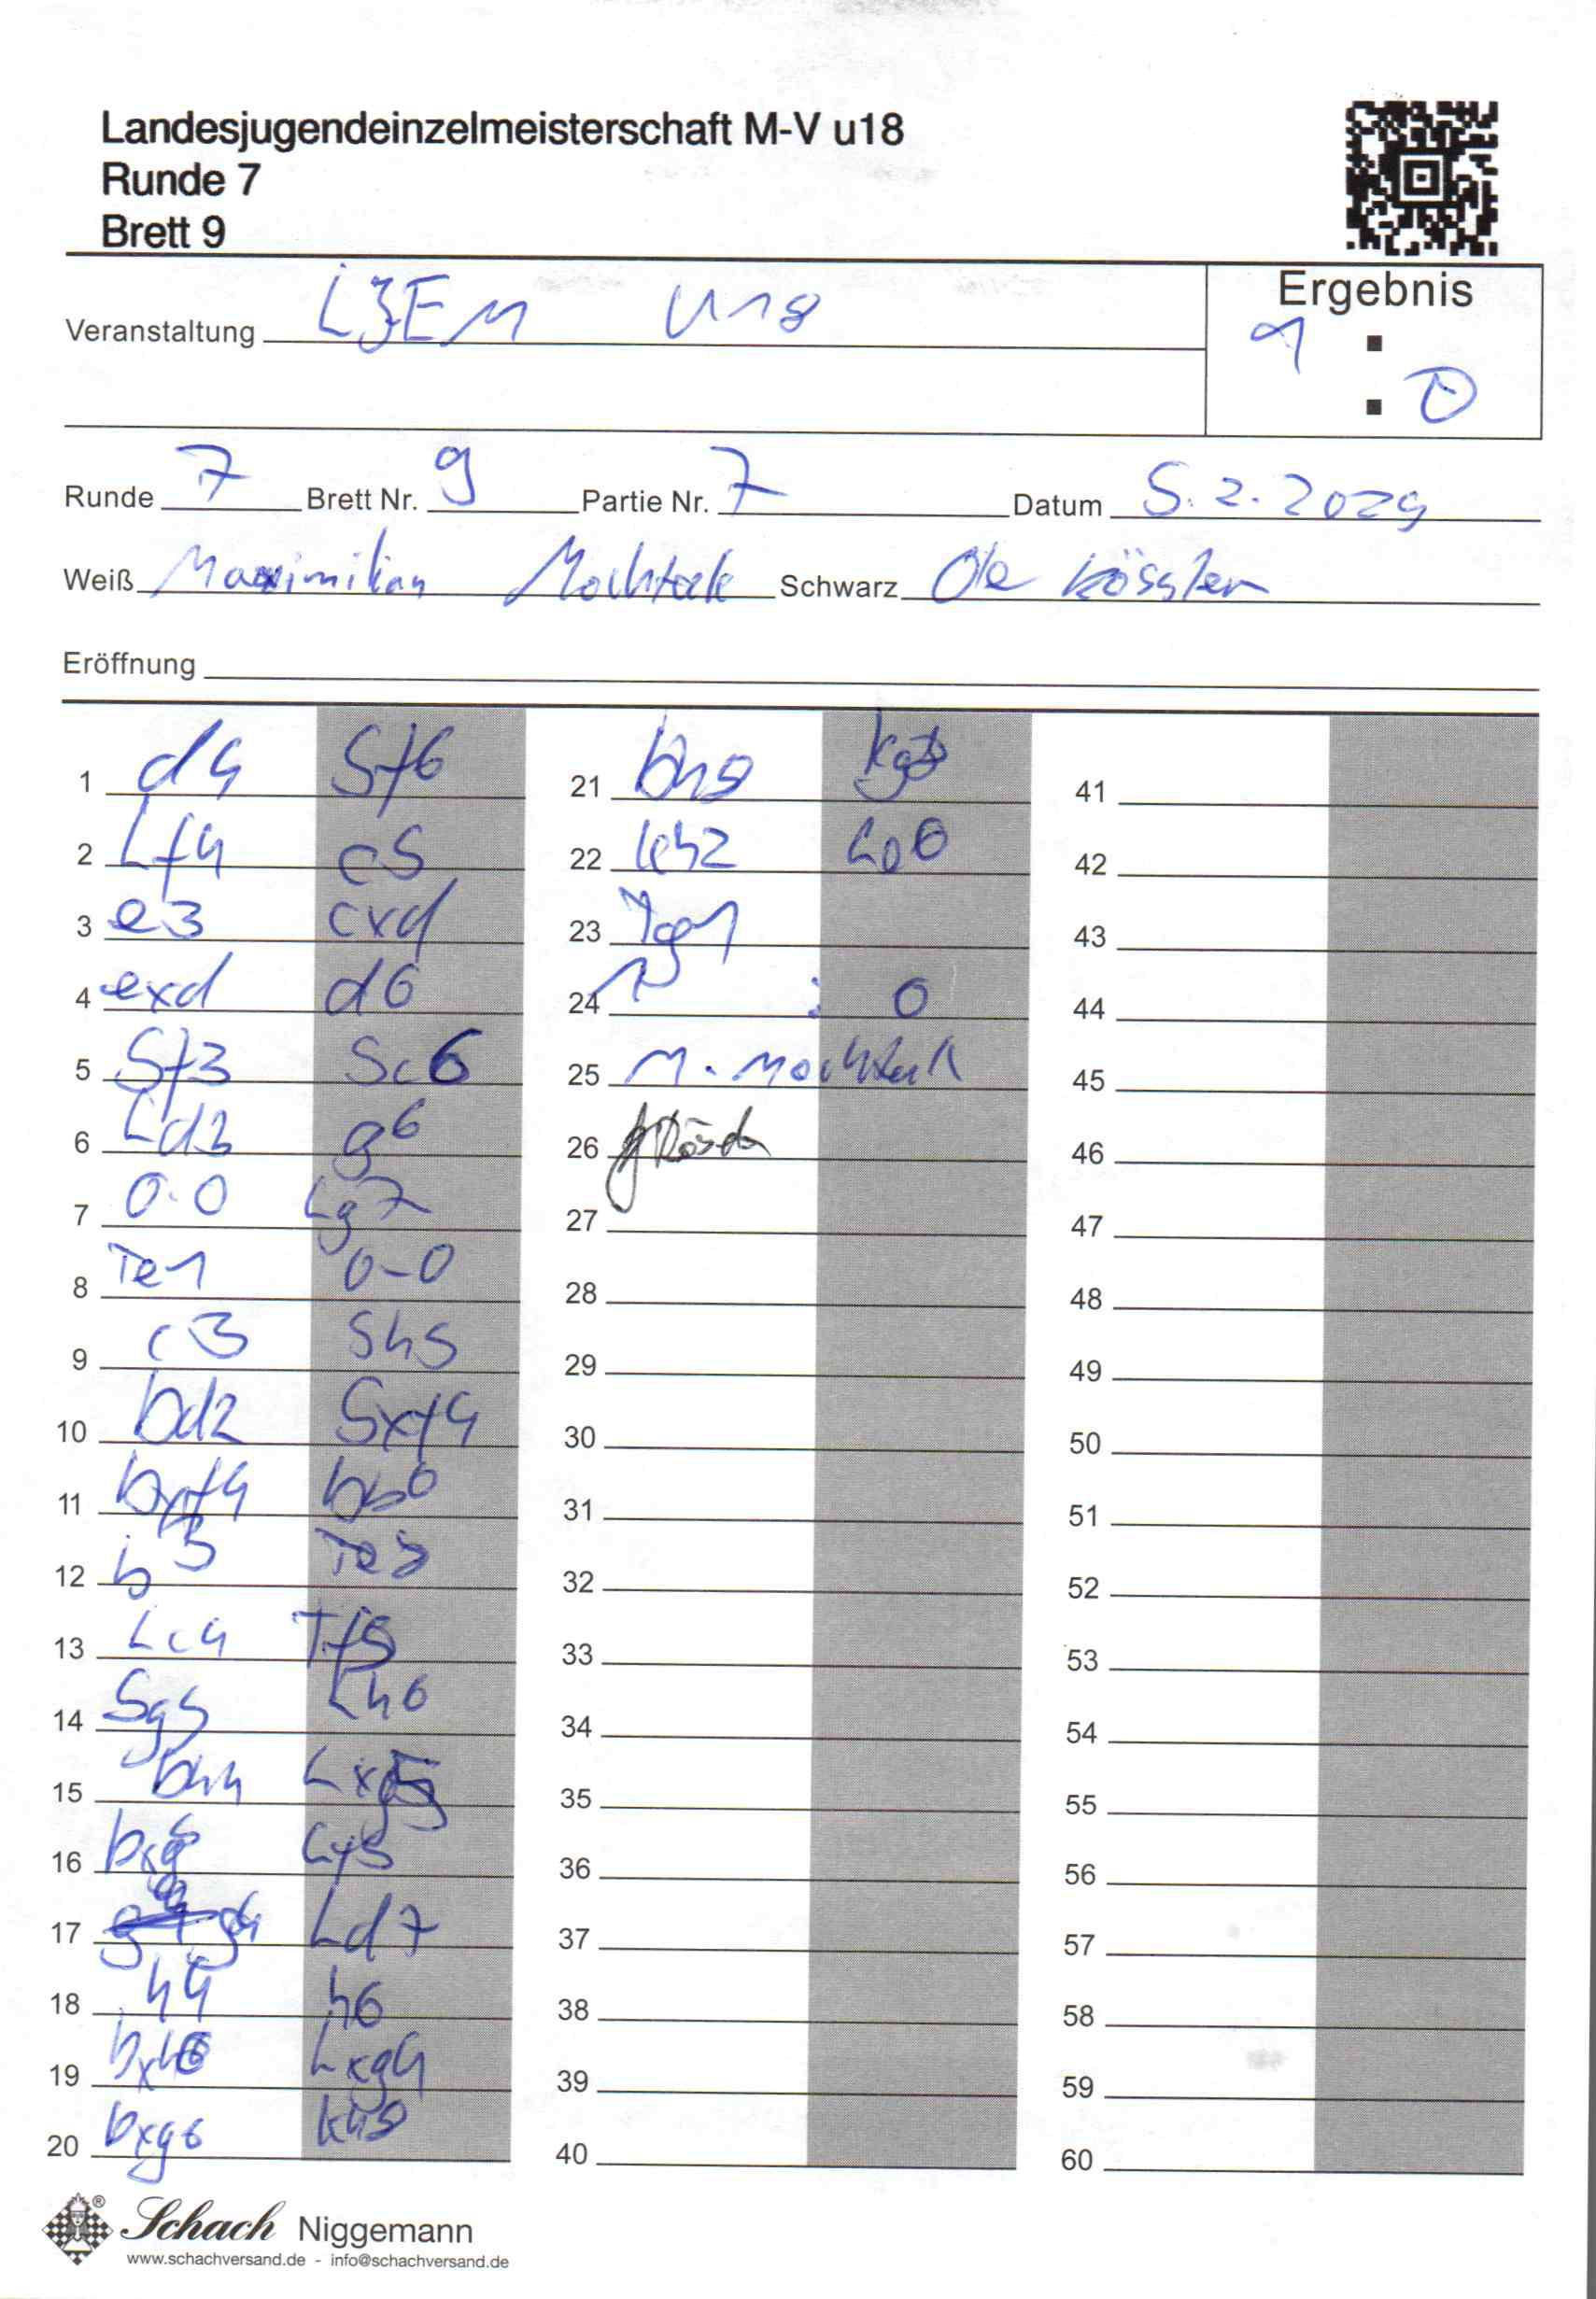 Landesjugendeinzelmeisterschaft M-V u18
Runde 7
Brett 9
Veranstaltung LJEM U18
Ergebnis
1 : 0
Runde 7 Brett Nr. 9 Partie Nr. 7 Datum 5.2.2024
Weiß Maximilian Schwarz Ole Kössler
Eröffnung
1 d4 Sf6
2 Lf4 c5
3 e3 cxd
4 exd d6
5 Sf3 Sc6
6 Ld3 g6
7 0-0 Lg7
8 Te1 0-0
9 c3 Sh5
10 Dd2 Sxf4
11 Dxf4 Db6
12 b3 Te8
13 Lc4 Tf8
14 Sg5 Lh6
15 Dh4 Lxg5
16 Dxg5 Lf5
17 g4 Ld7
18 h4 h6
19 Dxh6 Lxg4
20 Dxg6 Kh8
21 Dh6 Kg8
22 Kh2
23 Tg1
24 1 : 0
25 M.
26
27
28
29
30
31
32
33
34
35
36
37
38
39
40
41
42
43
44
45
46
47
48
49
50
51
52
53
54
55
56
57
58
59
60
Schach Niggemann
www.schachversand.de - info@schachversand.de